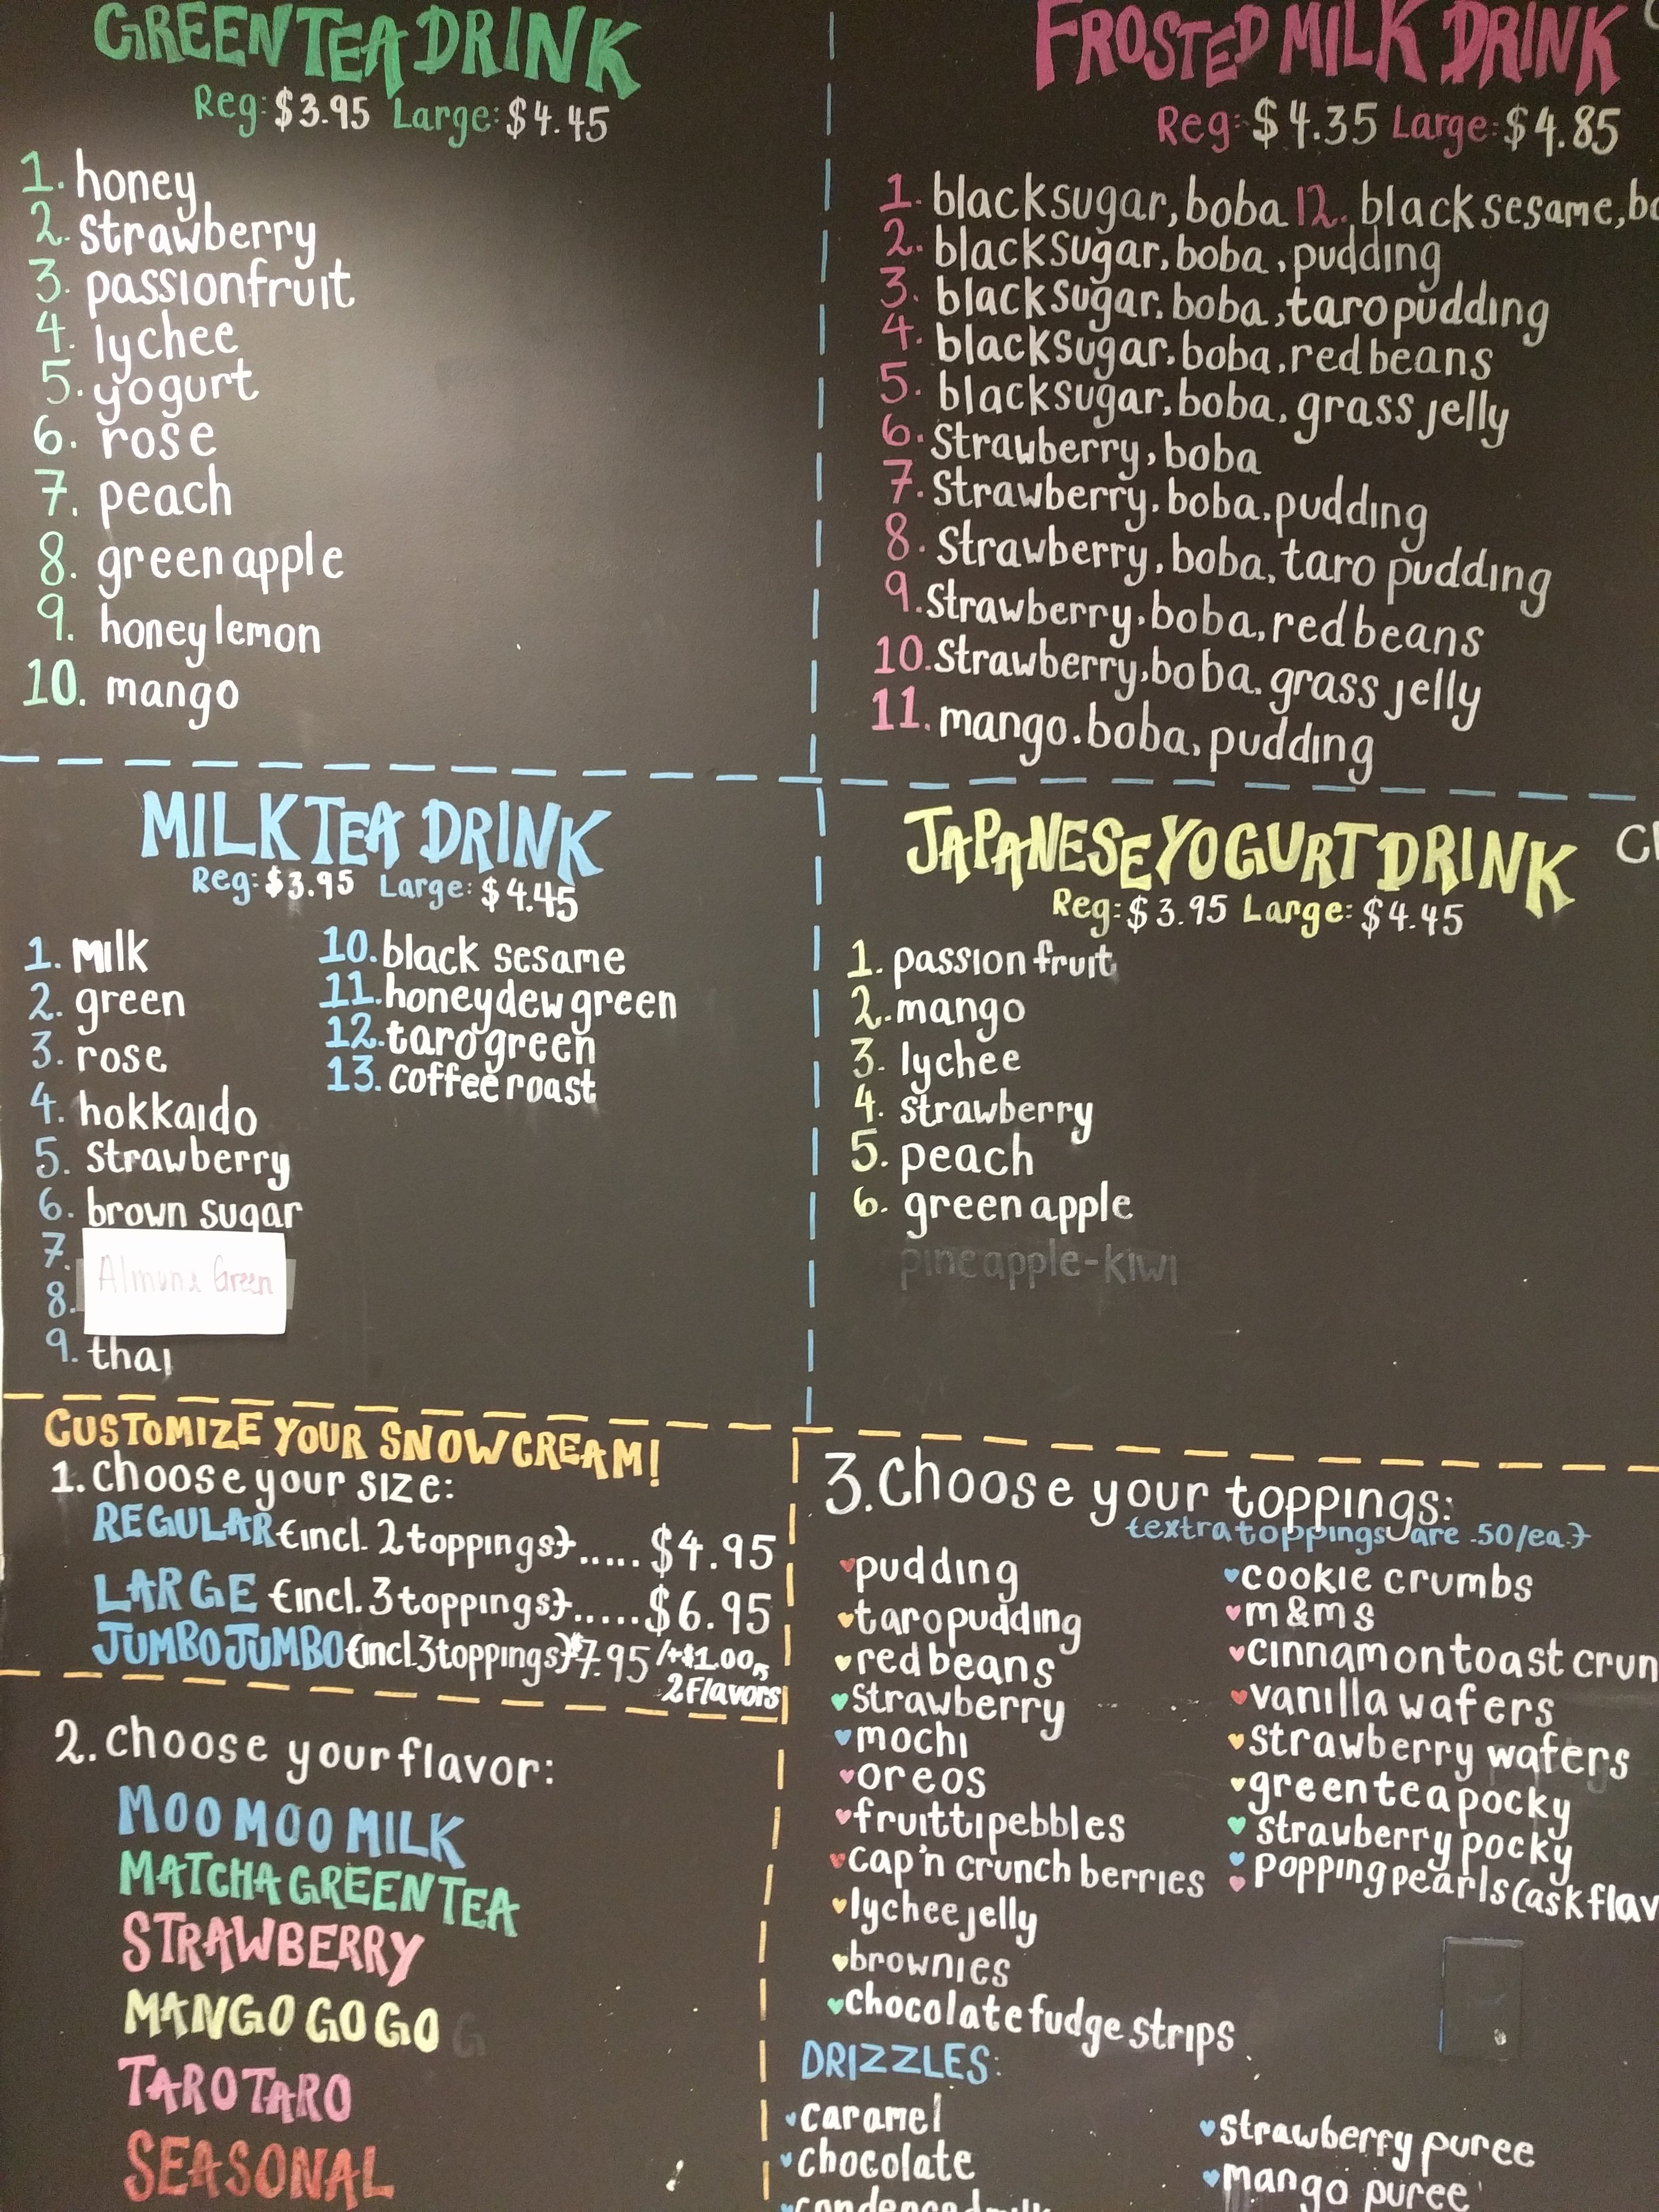 GREEN TEA DRINK
Reg: $3.95 Large: $4.45
1. honey
2. strawberry
3. passionfruit
4. lychee
5. yogurt
6. rose
7. peach
8. green apple
9. honey lemon
10. mango
FROSTED MILK DRINK
Reg: $4.35 Large: $4.85
1. black sugar, boba 12. black sesame, bo
2. black sugar, boba, pudding
3. black sugar, boba, taro pudding
4. black sugar, boba, red beans
5. black sugar, boba, grass jelly
6. Strawberry, boba
7. Strawberry, boba, pudding
8. Strawberry, boba, taro pudding
9. Strawberry, boba, red beans
10. Strawberry, boba, grass jelly
11. mango, boba, pudding
MILK TEA DRINK
Reg: $3.95 Large: $4.45
1. milk
2. green
3. rose
4. hokkaido
5. strawberry
6. brown sugar
7.
Almond Green
8.
9. thai
10. black sesame
11. honeydew green
12. taro green
13. coffee roast
JAPANESE YOGURT DRINK
Reg: $3.95 Large: $4.45
1. passion fruit
2. mango
3. lychee
4. strawberry
5. peach
6. green apple
pineapple-kiwi
CUSTOMIZE YOUR SNOW CREAM!
1. choose your size:
REGULAR {incl. 2 toppings}..... $4.95
LARGE {incl. 3 toppings}...... $6.95
JUMBO JUMBO {incl 3 toppings} $7.95 /+$1.00,
2 Flavors
2. choose your flavor:
MOO MOO MILK
MATCHA GREEN TEA
STRAWBERRY
MANGO GO GO
TARO TARO
SEASONAL
3. Choose your toppings:
{extra toppings are .50/ea.}
pudding
taro pudding
red beans
strawberry
mochi
oreos
fruitti pebbles
cap'n crunch berries
lychee jelly
brownies
chocolate fudge strips
cookie crumbs
m&ms
cinnamon toast crun
vanilla wafers
strawberry wafers
green tea pocky
strawberry pocky
popping pearls (ask flav
DRIZZLES:
caramel
chocolate
condensed milk
strawberry puree
mango puree